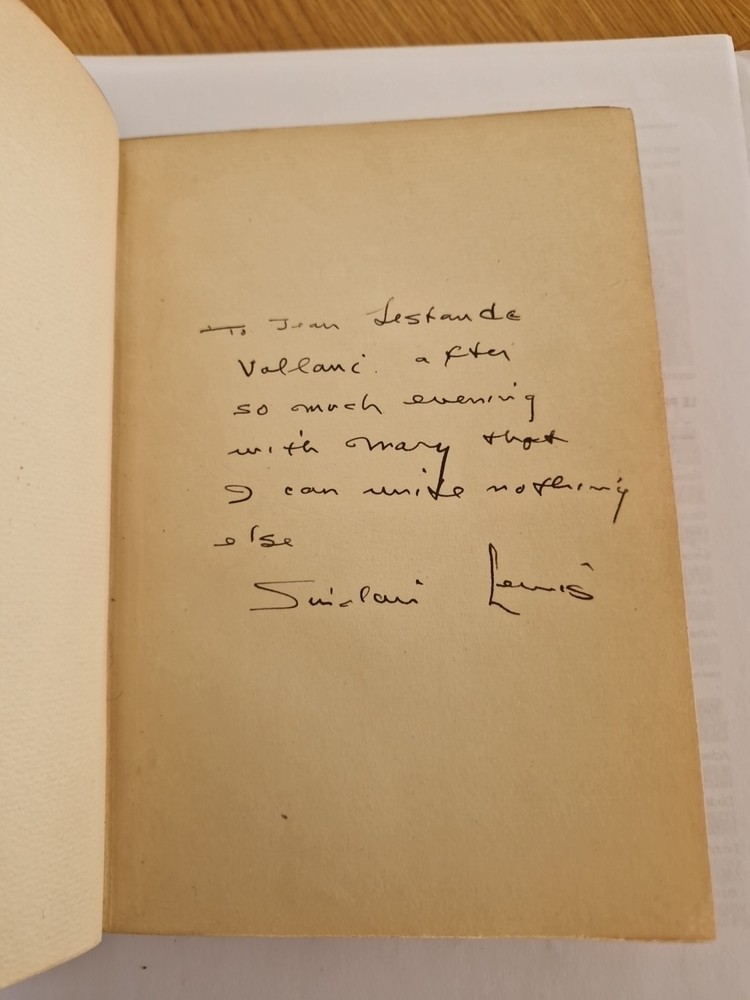 To Jean Lestande
Vallani. after
so much evening
with Mary that
I can write nothing
else
Sinclair Lewis